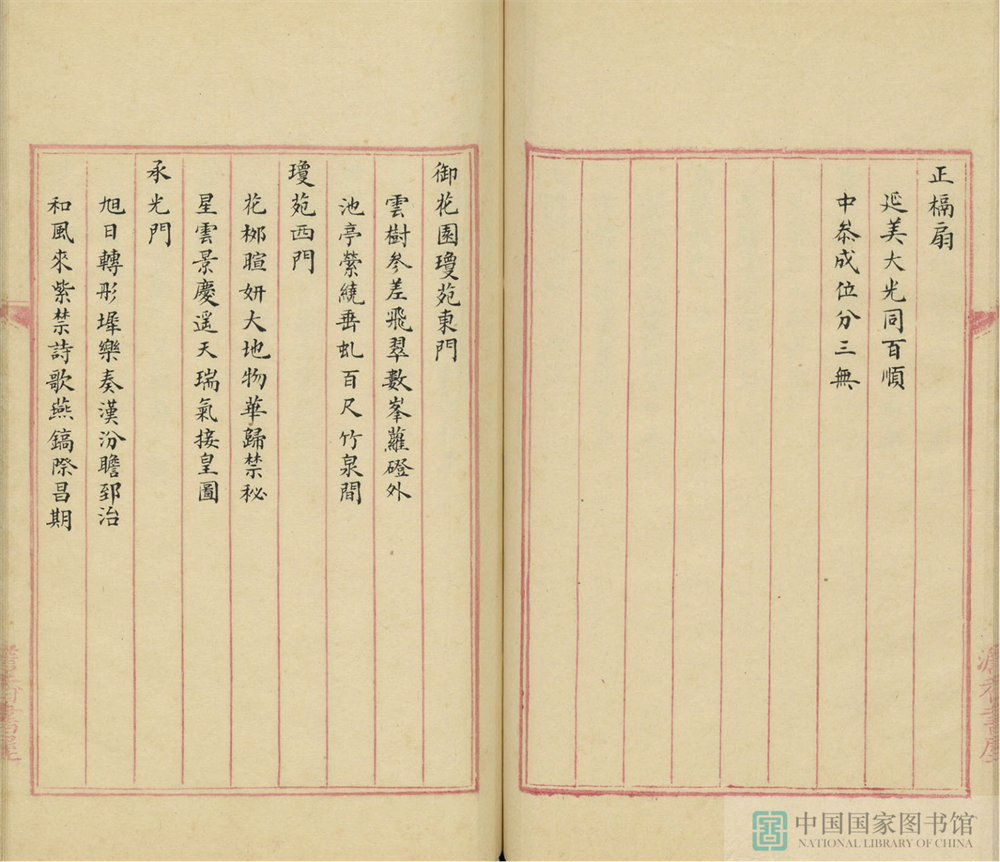 正槅扇
延美大光同百順
中叅成位分三無
御花園瓊苑東門
雲樹參差飛翠數峯蘿磴外
池亭縈繞垂虬百尺竹泉間
瓊苑西門
花栁暄妍大地物華歸禁秘
星雲景慶遥天瑞氣接皇圖
承光門
旭日轉彤墀樂奏漢汾瞻郅治
和風來紫禁詩歌燕鎬際昌期
中国国家图书馆
NATIONAL LIBRARY OF CHINA